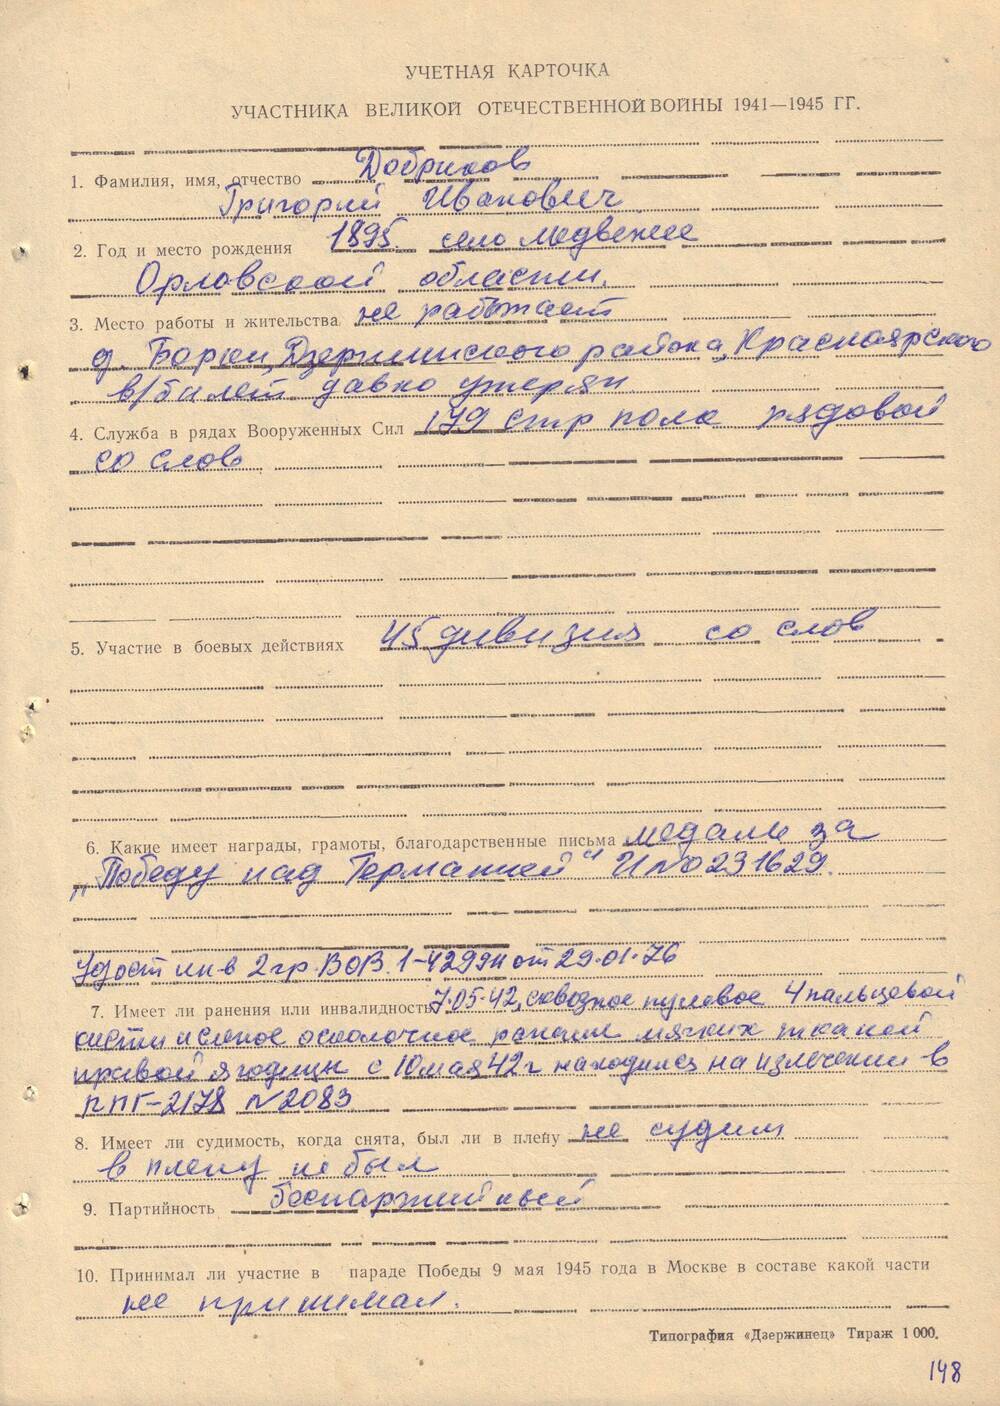 УЧЕТНАЯ КАРТОЧКА
УЧАСТНИКА ВЕЛИКОЙ ОТЕЧЕСТВЕННОЙ ВОЙНЫ 1941—1945 ГГ.
1. Фамилия, имя, отчество Добриков
Григорий Иванович
2. Год и место рождения 1895. село Медвежее
Орловской области.
3. Место работы и жительства не работает
д. Борки, Дзержинского района, Красноярского
в/билет давно утерян
4. Служба в рядах Вооруженных Сил 179 стр полк рядовой
со слов
5. Участие в боевых действиях 45 дивизия со слов
6. Какие имеет награды, грамоты, благодарственные письма медаль за
„Победу над Германией" И№0231629.
Удост ин-в 2гр. ВОВ. 1-42994 от 29.01.76
7. Имеет ли ранения или инвалидность 7.05.42, сквозное пулевое 4 пальцевой
кисти и слепое осколочное ранение мягких тканей
правой ягодицы с 10 мая 42 г находился на излечении в
ППГ-2178 №2083
8. Имеет ли судимость, когда снята, был ли в плену не судим
в плену не был
9. Партийность беспартийный
10. Принимал ли участие в параде Победы 9 мая 1945 года в Москве в составе какой части
не принимал.
Типография «Дзержинец» Тираж 1 000.
148